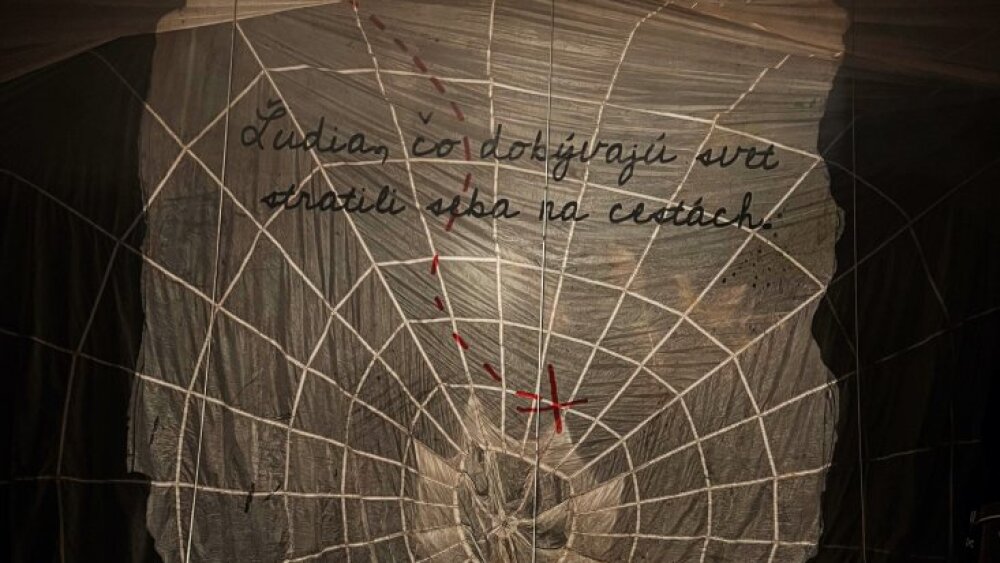 Ľudia, čo dobývajú svet
stratili seba na cestách.